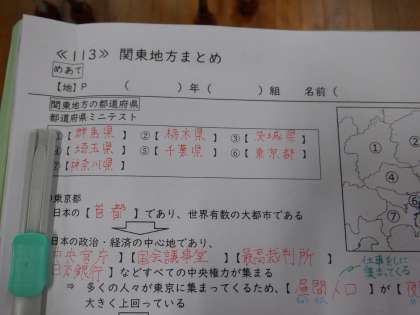 ≪113≫ 関東地方まとめ
めあて
【地】P ( ) 年 ( ) 組 名前 (
関東地方の都道府県
都道府県ミニテスト
①【群馬県】 ②【栃木県】 ③【茨城県】
④【埼玉県】 ⑤【千葉県】 ⑥【東京都】
⑦【神奈川県】
① ② ④ ⑥ ⑦
東京都
日本の【首都】であり、世界有数の大都市である
日本の政治・経済の中心地であり、
中央官庁】【国会議事堂】【最高裁判所】
日本銀行】などすべての中央権力が集まる
仕事をしに
集まってくる
⇒ 多くの人々が東京に集まってくるため、【昼間人口】が【夜
大きく上回っている